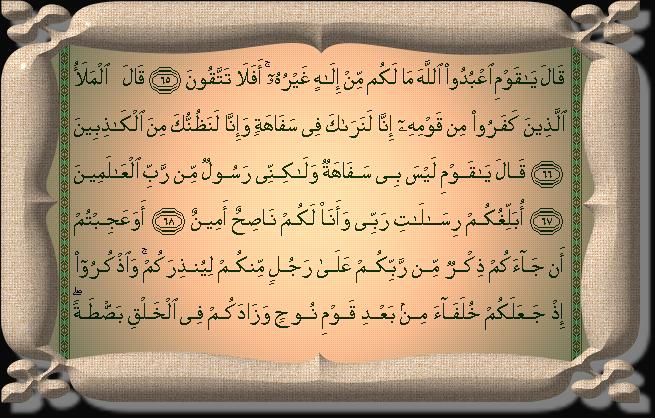 قَالَ يَـٰقَوْمِ ٱعْبُدُوا۟ ٱللَّهَ مَا لَكُم مِّنْ إِلَـٰهٍ غَيْرُهُۥٓ ۚ أَفَلَا تَتَّقُونَ ٦٥ قَالَ ٱلْمَلَأُ
ٱلَّذِينَ كَفَرُوا۟ مِن قَوْمِهِۦٓ إِنَّا لَنَرَىٰكَ فِى سَفَاهَةٍ وَإِنَّا لَنَظُنُّكَ مِنَ ٱلْكَـٰذِبِينَ
٦٦ قَالَ يَـٰقَوْمِ لَيْسَ بِى سَفَاهَةٌ وَلَـٰكِنِّى رَسُولٌ مِّن رَّبِّ ٱلْعَـٰلَمِينَ
٦٧ أُبَلِّغُكُمْ رِسَـٰلَـٰتِ رَبِّى وَأَنَا۠ لَكُمْ نَاصِحٌ أَمِينٌ ٦٨ أَوَعَجِبْتُمْ
أَن جَآءَكُمْ ذِكْرٌ مِّن رَّبِّكُمْ عَلَىٰ رَجُلٍ مِّنكُمْ لِيُنذِرَكُمْ ۚ وَٱذْكُرُوٓا۟
إِذْ جَعَلَكُمْ خُلَفَآءَ مِنۢ بَعْدِ قَوْمِ نُوحٍ وَزَادَكُمْ فِى ٱلْخَلْقِ بَصْۜطَةً ۖ